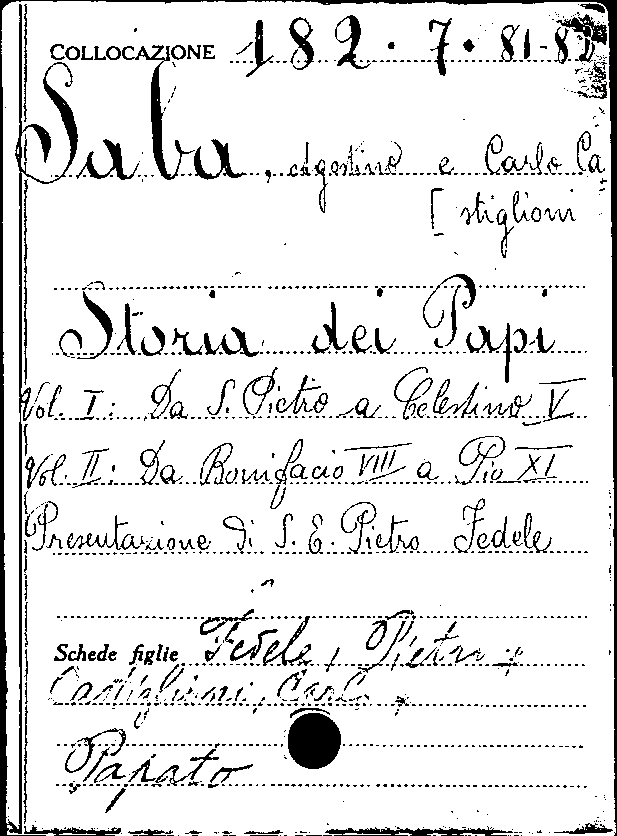 COLLOCAZIONE 182.7.81-82
Saba, Agostino e Carlo Ca=
[stiglioni
Storia dei Papi
Vol. I: Da S. Pietro a Celestino V
Vol. II: Da Bonifacio VIII a Pio XI
Presentazione di S. E. Pietro Fedele
Schede figlie Fedele, Pietro +
Castiglioni, Carlo +
Papato